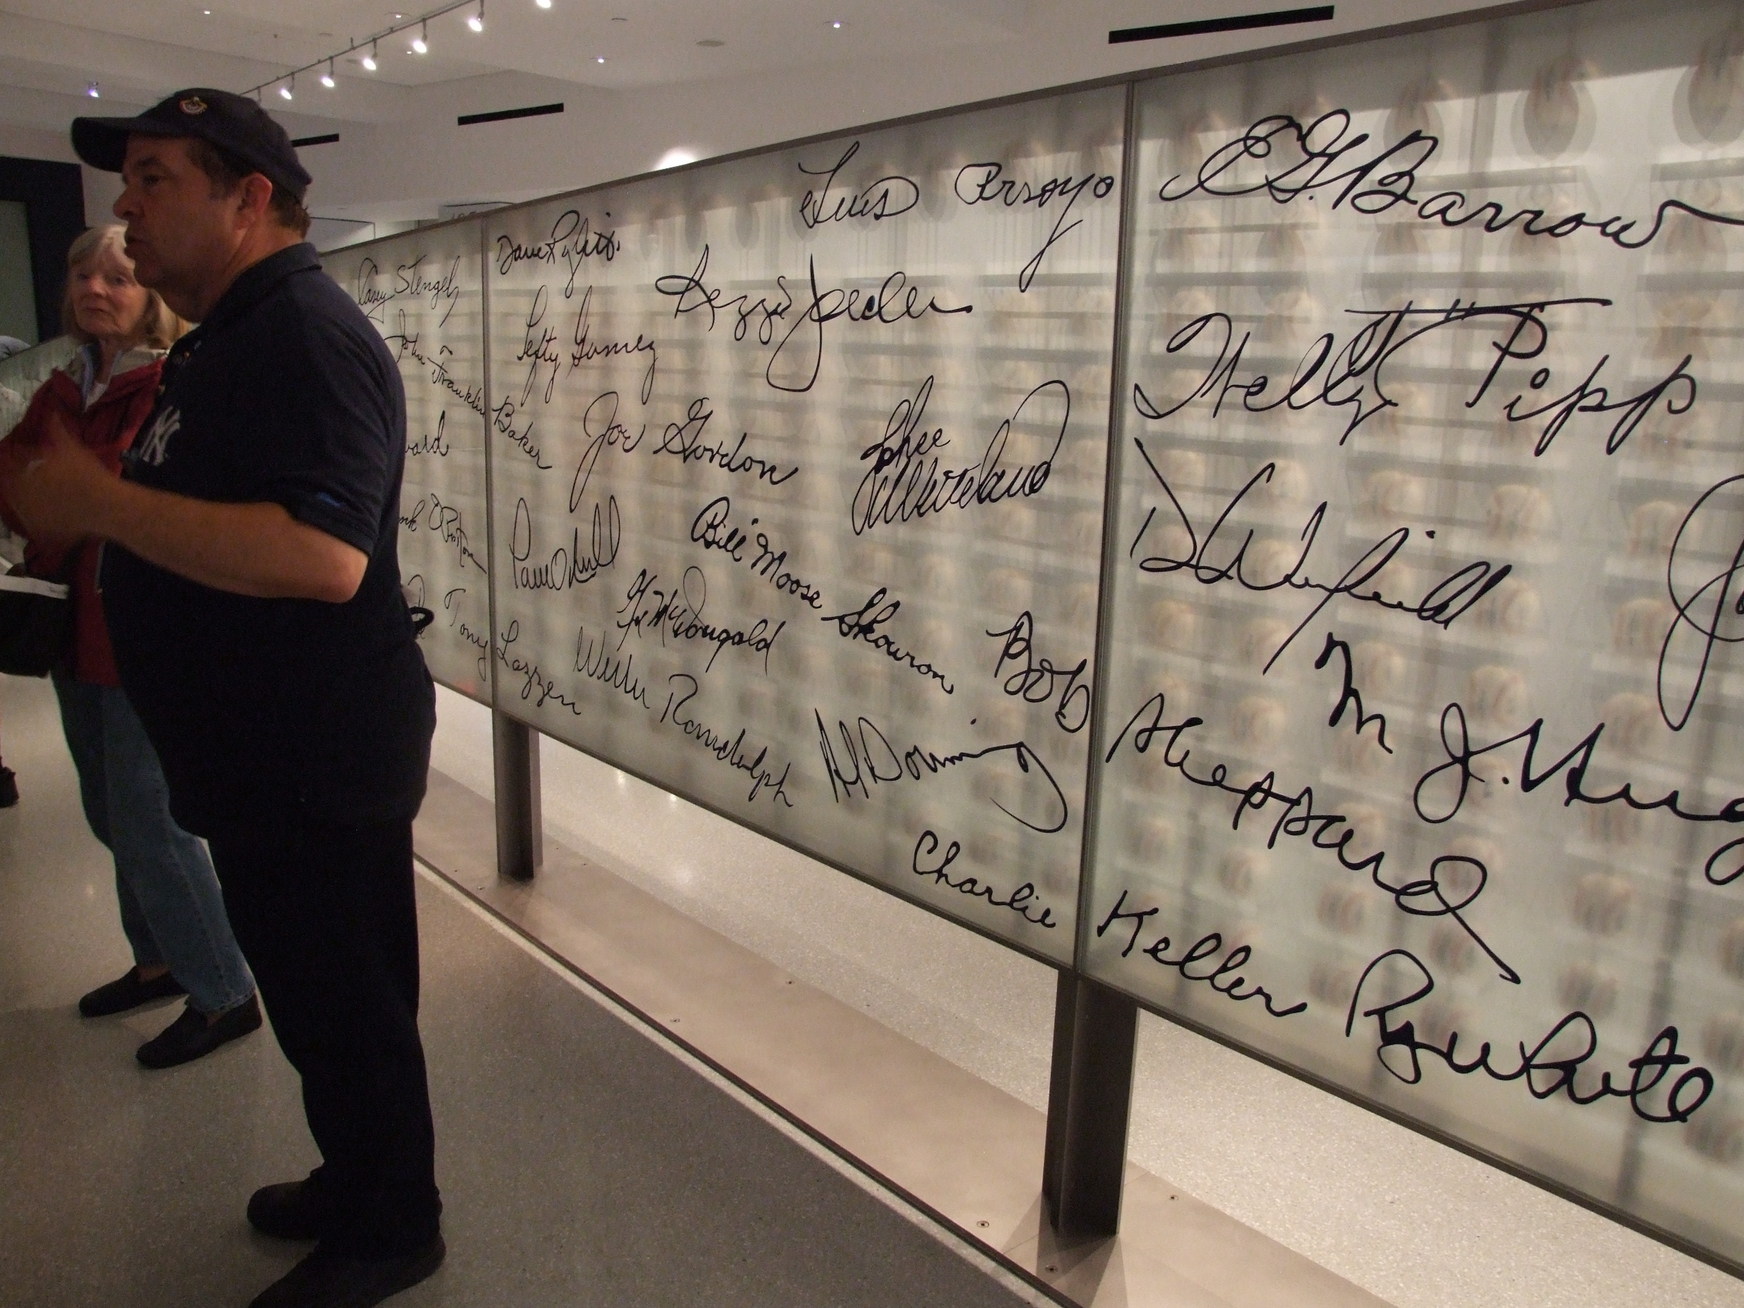 Casey Stengel
John Franklin Baker
ward
Tony Lazzeri
Dave Righetti
Lefty Gomez
Reggie Jackson
Joe Gordon
Paul O'Neill
Bill "Moose" Skowron
Gil McDougald
Willie Randolph
Al Downing
Luis Arroyo
Bob Sheppard
Charlie Keller
E G. Barrow
Wally Pipp
D Winfield
M J. Hug
Roy White
NY